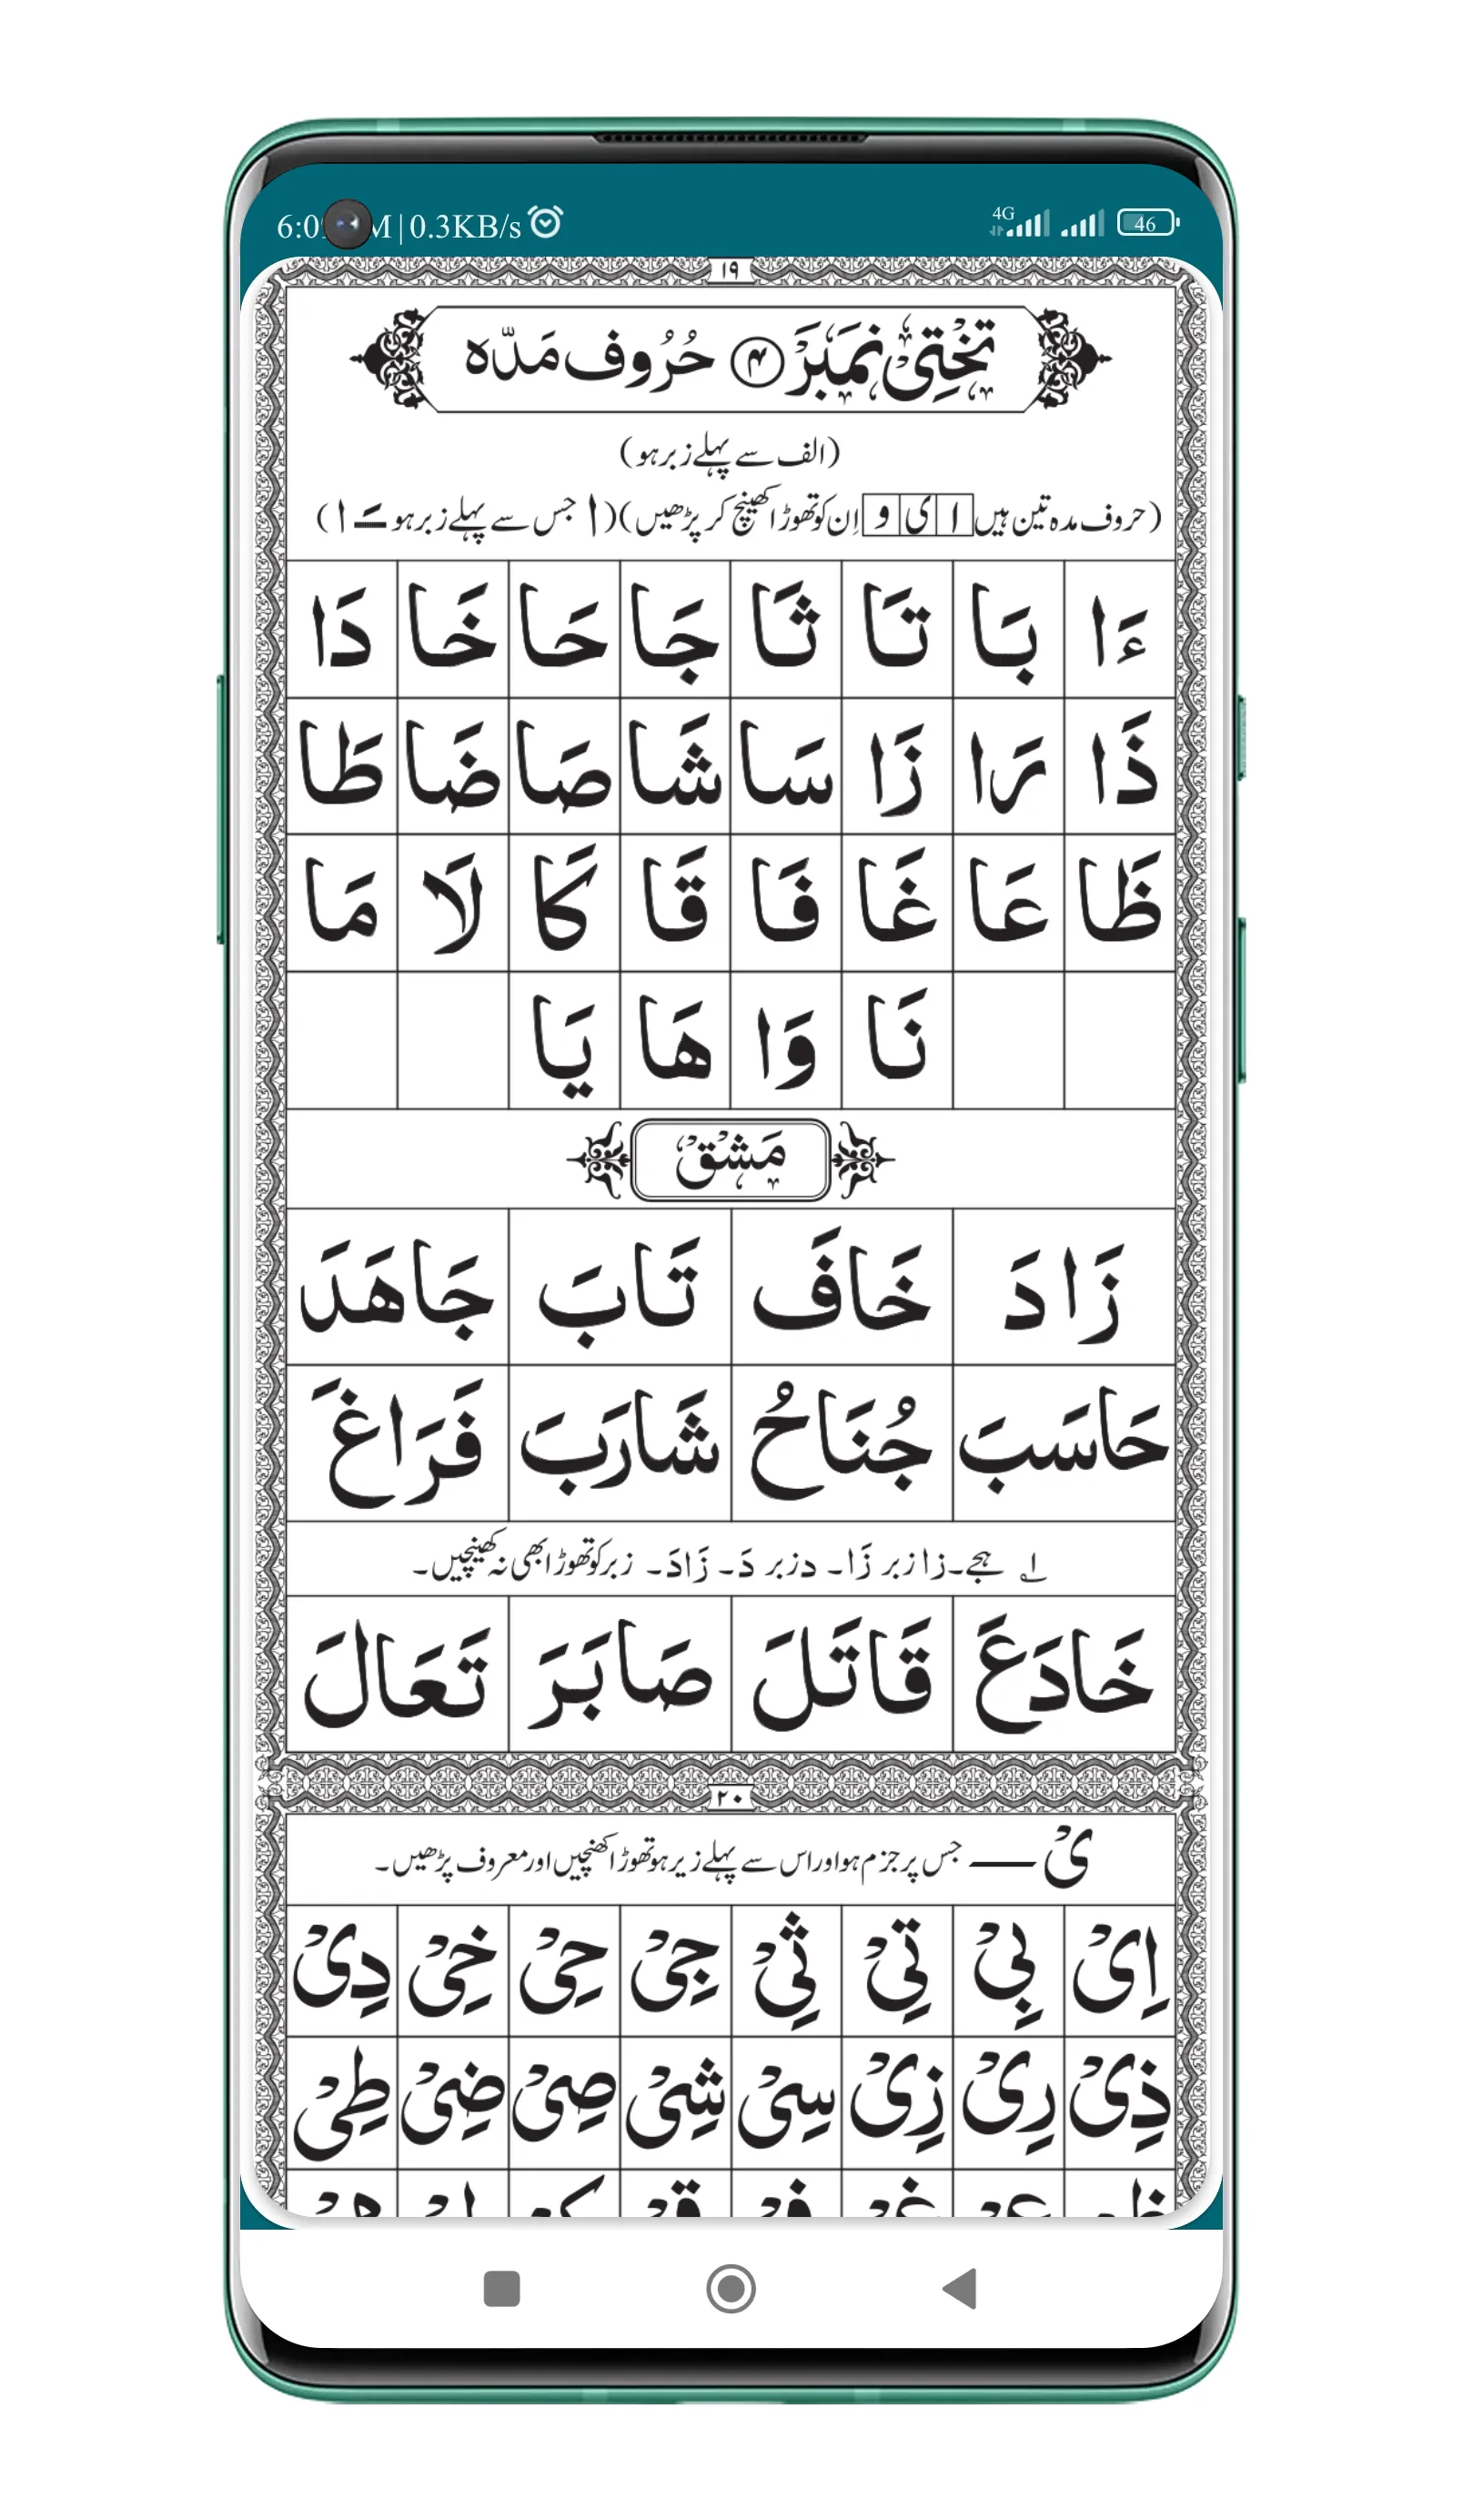 6:0 M | 0.3KB/s 4G 46
۱۹
تَخْتِیْ نَمْبَرْ ۴ حُرُوف مَدّہ
(الف سے پہلے زبر ہو)
(حروف مدہ تین ہیں ا ی و اِن کو تھوڑا کھینچ کر پڑھیں)(ا جس سے پہلے زبر ہو ـَـ ا)
ءَا بَا تَا ثَا جَا حَا خَا دَا
ذَا رَا زَا سَا شَا صَا ضَا طَا
ظَا عَا غَا فَا قَا كَا لَا مَا
نَا وَا هَا يَا
مَشْقْ
زَادَ خَافَ تَابَ جَاهَدَ
حَاسَبَ جُنَاحُ شَارَبَ فَرَاغَ
لے ہجے۔ زا زبر زَا۔ د زبر دَ۔ زَادَ۔ زبر کو تھوڑا بھی نہ کھینچیں۔
خَادَعَ قَاتَلَ صَابَرَ تَعَالَ
۲۰
یْ ـــــ جس پر جزم ہو اور اس سے پہلے زیر ہو تھوڑا کھینچیں اور معروف پڑھیں۔
اِیْ بِیْ تِیْ ثِیْ جِیْ حِیْ خِیْ دِیْ
ذِیْ رِیْ زِیْ سِیْ شِیْ صِیْ ضِیْ طِیْ